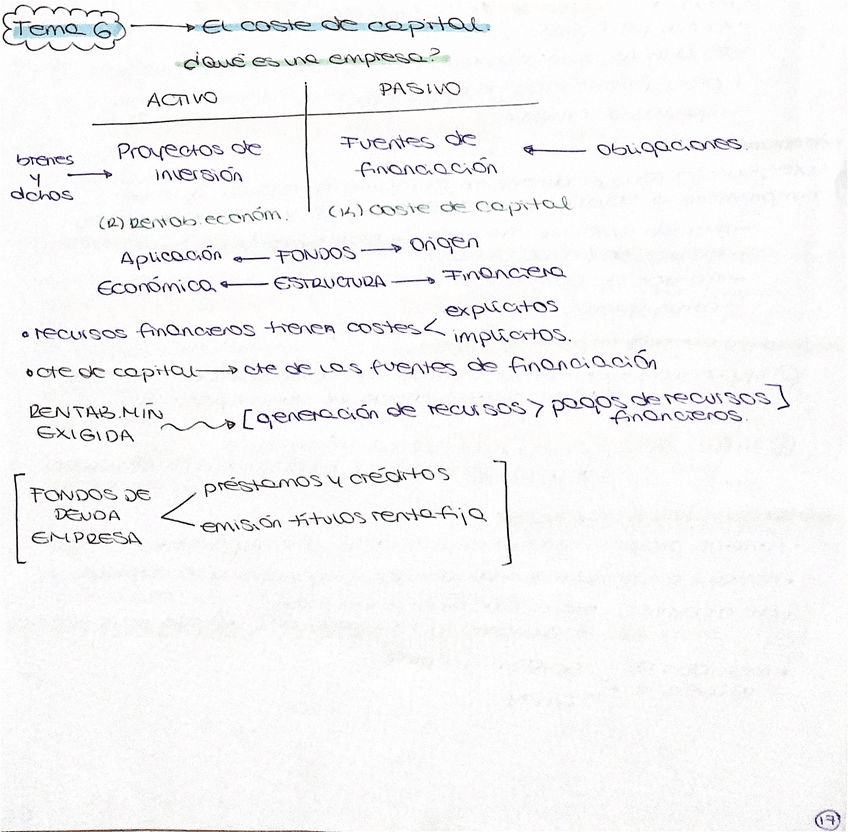 Tema 6 → El coste de capital.
¿Qué es una empresa?
ACTIVO PASIVO
bienes y dchos → Proyectos de inversión Fuentes de financiación ← Obligaciones.
(R) Rentab. económ. (K) coste de capital
Aplicación ← FONDOS → Origen
Económica ← ESTRUCTURA → Financiera
• recursos financieros tienen costes < explícitos
implícitos.
• cte de capital → cte de las fuentes de financiación
RENTAB. MIN EXIGIDA → [generación de recursos > pagos de recursos financieros.]
FONDOS DE DEUDA EMPRESA < préstamos y créditos
emisión títulos renta fija
17